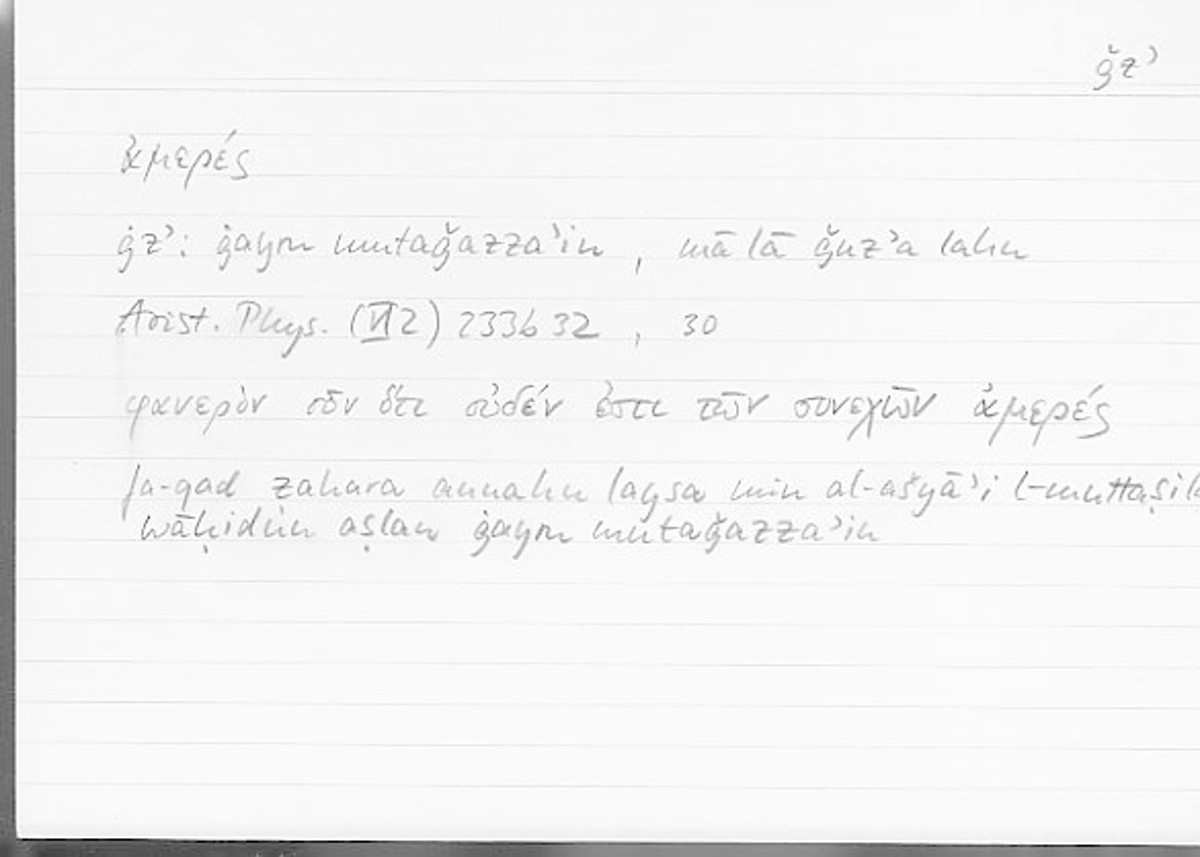 ǧzʾ
ἀμερές
ǧzʾ: ġayru mutaǧazzaʾin, mā lā ǧuzʾa lahu
Arist. Phys. (VI 2) 233b32, 30
φανερὸν οὖν ὅτι οὐδέν ἐστι τῶν συνεχῶν ἀμερές
fa-qad zahara annahu laysa min al-ašyāʾi l-muttaṣil
wāḥidun aṣlan ġayru mutaǧazzaʾin